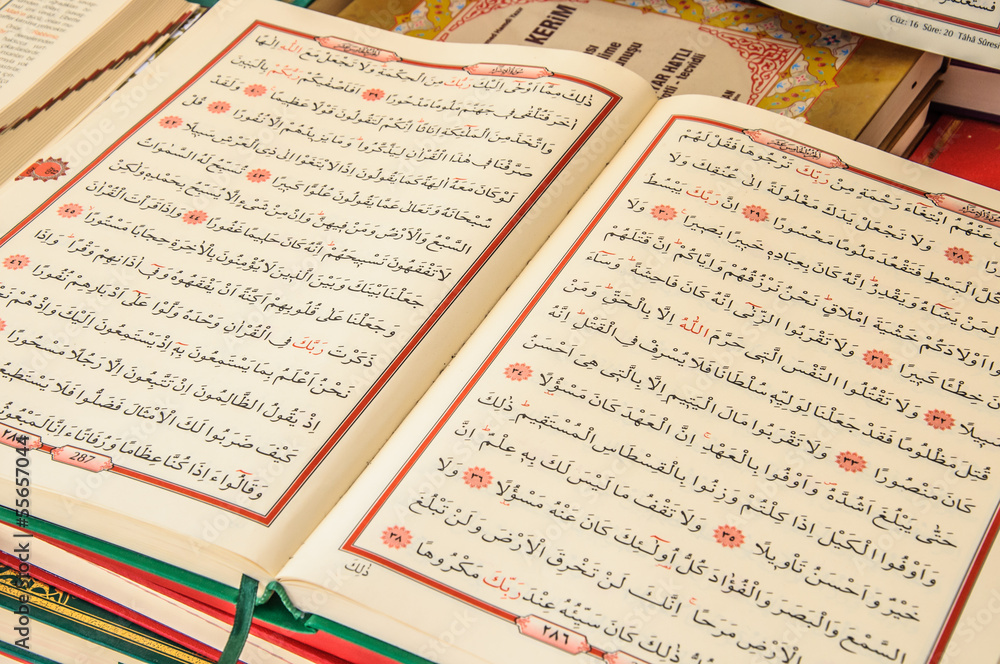 KERİM
Cüz: 16 Sûre: 20 Tâhâ Sûresi
عَنْهُمُ ابْتِغَاءَ رَحْمَةٍ مِنْ رَبِّكَ تَرْجُوهَا فَقُلْ لَهُمْ
رًا ٢٨ وَلَا تَجْعَلْ يَدَكَ مَغْلُولَةً اِلٰى عُنُقِكَ وَلَا
كُلَّ الْبَسْطِ فَتَقْعُدَ مَلُومًا مَحْسُورًا ٢٩ اِنَّ رَبَّكَ يَبْسُطُ
لِمَنْ يَشَاءُ وَيَقْدِرُ اِنَّهُ كَانَ بِعِبَادِهِ خَبِيرًا بَصِيرًا ٣٠ وَلَا
اَوْلَادَكُمْ خَشْيَةَ اِمْلَاقٍ نَحْنُ نَرْزُقُهُمْ وَاِيَّاكُمْ اِنَّ قَتْلَهُمْ
خِطْئًا كَبِيرًا ٣١ وَلَا تَقْرَبُوا الزِّنٰى اِنَّهُ كَانَ فَاحِشَةً وَسَاءَ
سَبِيلًا ٣٢ وَلَا تَقْتُلُوا النَّفْسَ الَّتِي حَرَّمَ اللّٰهُ اِلَّا بِالْحَقِّ وَمَنْ
قُتِلَ مَظْلُومًا فَقَدْ جَعَلْنَا لِوَلِيِّهِ سُلْطَانًا فَلَا يُسْرِفْ فِي الْقَتْلِ اِنَّهُ
كَانَ مَنْصُورًا ٣٣ وَلَا تَقْرَبُوا مَالَ الْيَتِيمِ اِلَّا بِالَّتِي هِيَ اَحْسَنُ
حَتّٰى يَبْلُغَ اَشُدَّهُ وَاَوْفُوا بِالْعَهْدِ اِنَّ الْعَهْدَ كَانَ مَسْؤُلًا ٣٤
وَاَوْفُوا الْكَيْلَ اِذَا كِلْتُمْ وَزِنُوا بِالْقِسْطَاسِ الْمُسْتَقِيمِ ذٰلِكَ
خَيْرٌ وَاَحْسَنُ تَاْوِيلًا ٣٥ وَلَا تَقْفُ مَا لَيْسَ لَكَ بِهِ عِلْمٌ اِنَّ
السَّمْعَ وَالْبَصَرَ وَالْفُؤَادَ كُلُّ اُولٰئِكَ كَانَ عَنْهُ مَسْؤُلًا ٣٦ وَلَا
الْاَرْضِ مَرَحًا اِنَّكَ لَنْ تَخْرِقَ الْاَرْضَ وَلَنْ تَبْلُغَ
ذٰلِكَ كَانَ سَيِّئُهُ عِنْدَ رَبِّكَ مَكْرُوهًا ٣٨
ذٰلِكَ
٢٨٦
ذٰلِكَ مِمَّا اَوْحٰى اِلَيْكَ رَبُّكَ مِنَ الْحِكْمَةِ وَلَا تَجْعَلْ مَعَ اللّٰهِ اِلٰهًا
اٰخَرَ فَتُلْقٰى فِي جَهَنَّمَ مَلُومًا مَدْحُورًا ٣٩ اَفَاَصْفٰيكُمْ رَبُّكُمْ بِالْبَنِينَ
وَاتَّخَذَ مِنَ الْمَلٰئِكَةِ اِنَاثًا اِنَّكُمْ لَتَقُولُونَ قَوْلًا عَظِيمًا ٤٠ وَلَقَدْ
صَرَّفْنَا فِي هٰذَا الْقُرْاٰنِ لِيَذَّكَّرُوا وَمَا يَزِيدُهُمْ اِلَّا نُفُورًا ٤١ قُلْ
لَوْ كَانَ مَعَهُ اٰلِهَةٌ كَمَا يَقُولُونَ اِذًا لَابْتَغَوْا اِلٰى ذِي الْعَرْشِ سَبِيلًا ٤٢
سُبْحَانَهُ وَتَعَالٰى عَمَّا يَقُولُونَ عُلُوًّا كَبِيرًا ٤٣ تُسَبِّحُ لَهُ السَّمٰوَاتُ
السَّبْعُ وَالْاَرْضُ وَمَنْ فِيهِنَّ وَاِنْ مِنْ شَيْءٍ اِلَّا يُسَبِّحُ بِحَمْدِهِ وَلٰكِنْ
لَا تَفْقَهُونَ تَسْبِيحَهُمْ اِنَّهُ كَانَ حَلِيمًا غَفُورًا ٤٤ وَاِذَا قَرَاْتَ الْقُرْاٰنَ
جَعَلْنَا بَيْنَكَ وَبَيْنَ الَّذِينَ لَا يُؤْمِنُونَ بِالْاٰخِرَةِ حِجَابًا مَسْتُورًا ٤٥
وَجَعَلْنَا عَلٰى قُلُوبِهِمْ اَكِنَّةً اَنْ يَفْقَهُوهُ وَفِي اٰذَانِهِمْ وَقْرًا وَاِذَا
ذَكَرْتَ رَبَّكَ فِي الْقُرْاٰنِ وَحْدَهُ وَلَّوْا عَلٰى اَدْبَارِهِمْ نُفُورًا ٤٦
نَحْنُ اَعْلَمُ بِمَا يَسْتَمِعُونَ بِهِ اِذْ يَسْتَمِعُونَ اِلَيْكَ وَاِذْ هُمْ
اِذْ يَقُولُ الظَّالِمُونَ اِنْ تَتَّبِعُونَ اِلَّا رَجُلًا مَسْحُورًا
كَيْفَ ضَرَبُوا لَكَ الْاَمْثَالَ فَضَلُّوا فَلَا يَسْتَطِيعُونَ
وَقَالُوا ءَاِذَا كُنَّا عِظَامًا وَرُفَاتًا ءَاِنَّا لَمَبْعُوثُونَ
287
Adobe Stock | #55657044